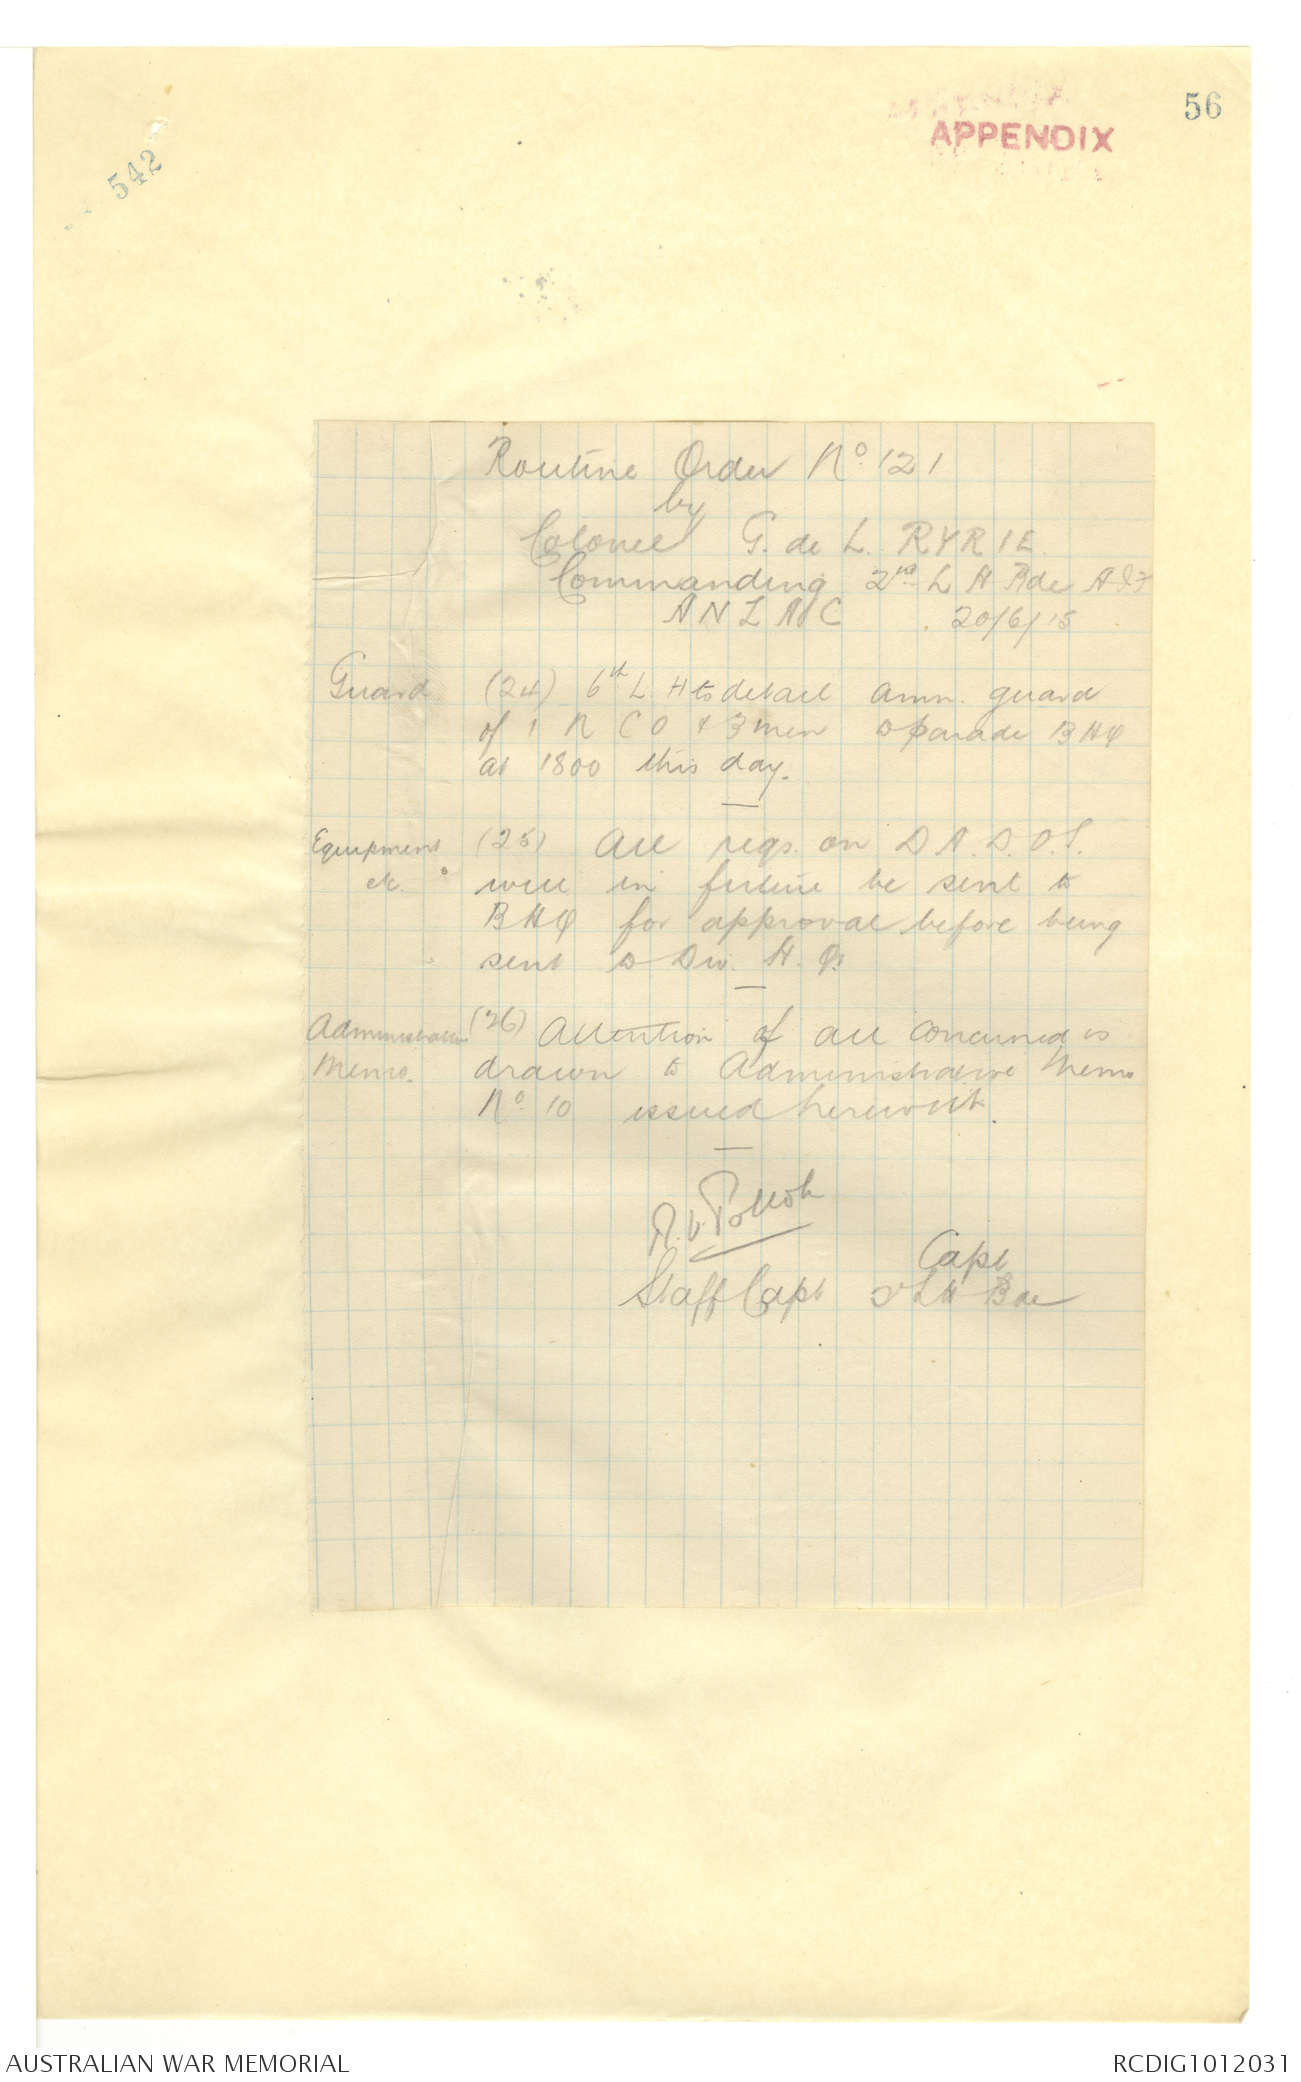 56
APPENDIX
542
Routine Order No. 121
by
Colonel G. de L. RYRIE
Commanding 2nd L H Bde AIF
ANZAC . 20/6/15
Guard (24) 6th L. H to detail amn. guard
of 1 N C O & 3 men to parade BHQ
at 1800 this day.
Equipment (25) All reqs. on D A. D. O. S.
etc. will in future be sent to
BHQ for approval before being
sent to Div. H. Q.
Administrative (26) Attention of all concerned is
Memo. drawn to Administrative Memo
No. 10 issued herewith.
R. V. Pollok
Capt
Staff Capt 2nd LH Bde
AUSTRALIAN WAR MEMORIAL
RCDIG1012031